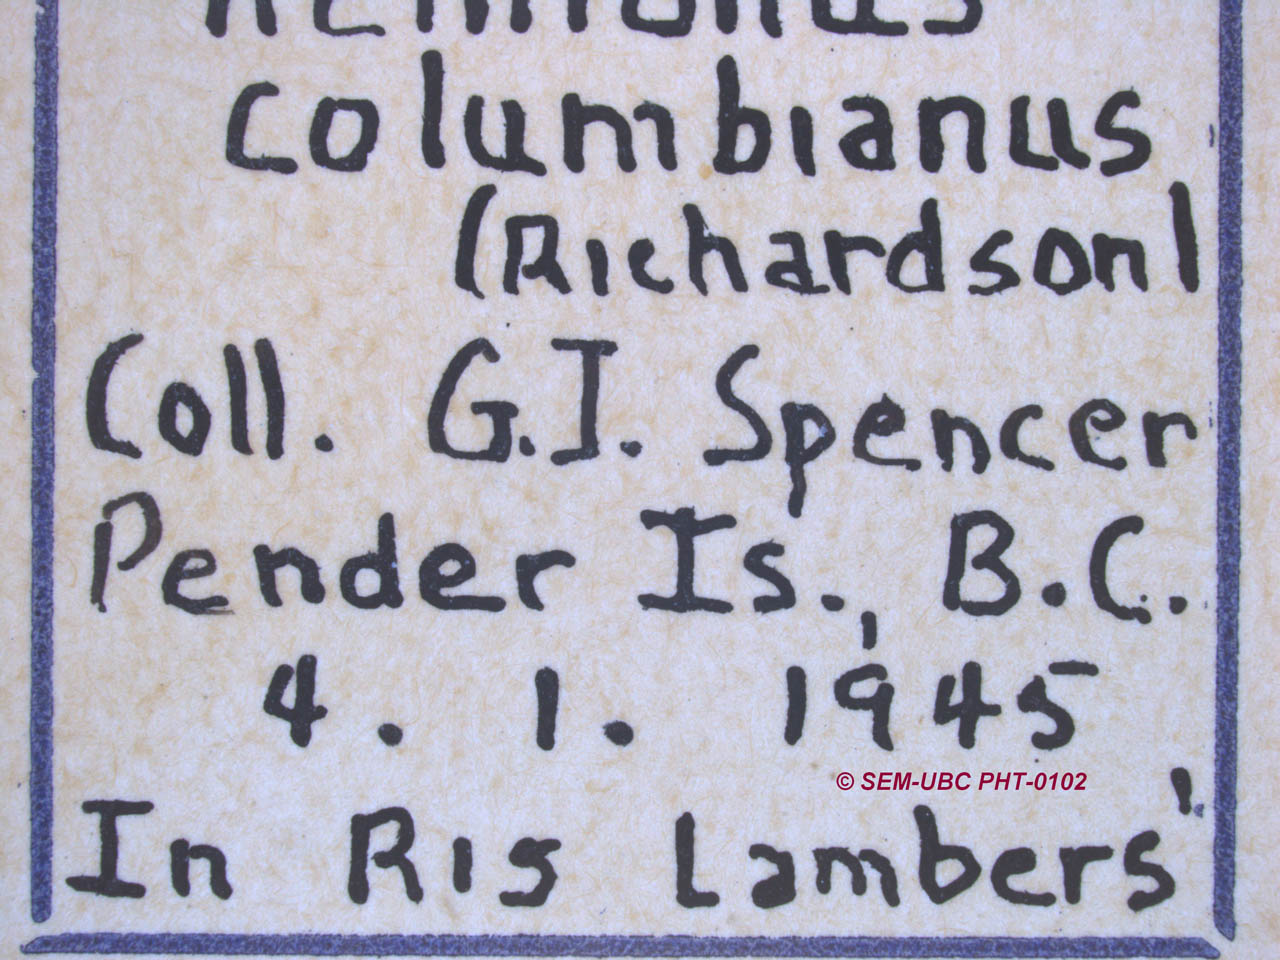 hemionus
columbianus
(Richardson)
Coll. G.I. Spencer
Pender Is., B.C.
4. 1. 1945
© SEM-UBC PHT-0102
In Ris Lambers'